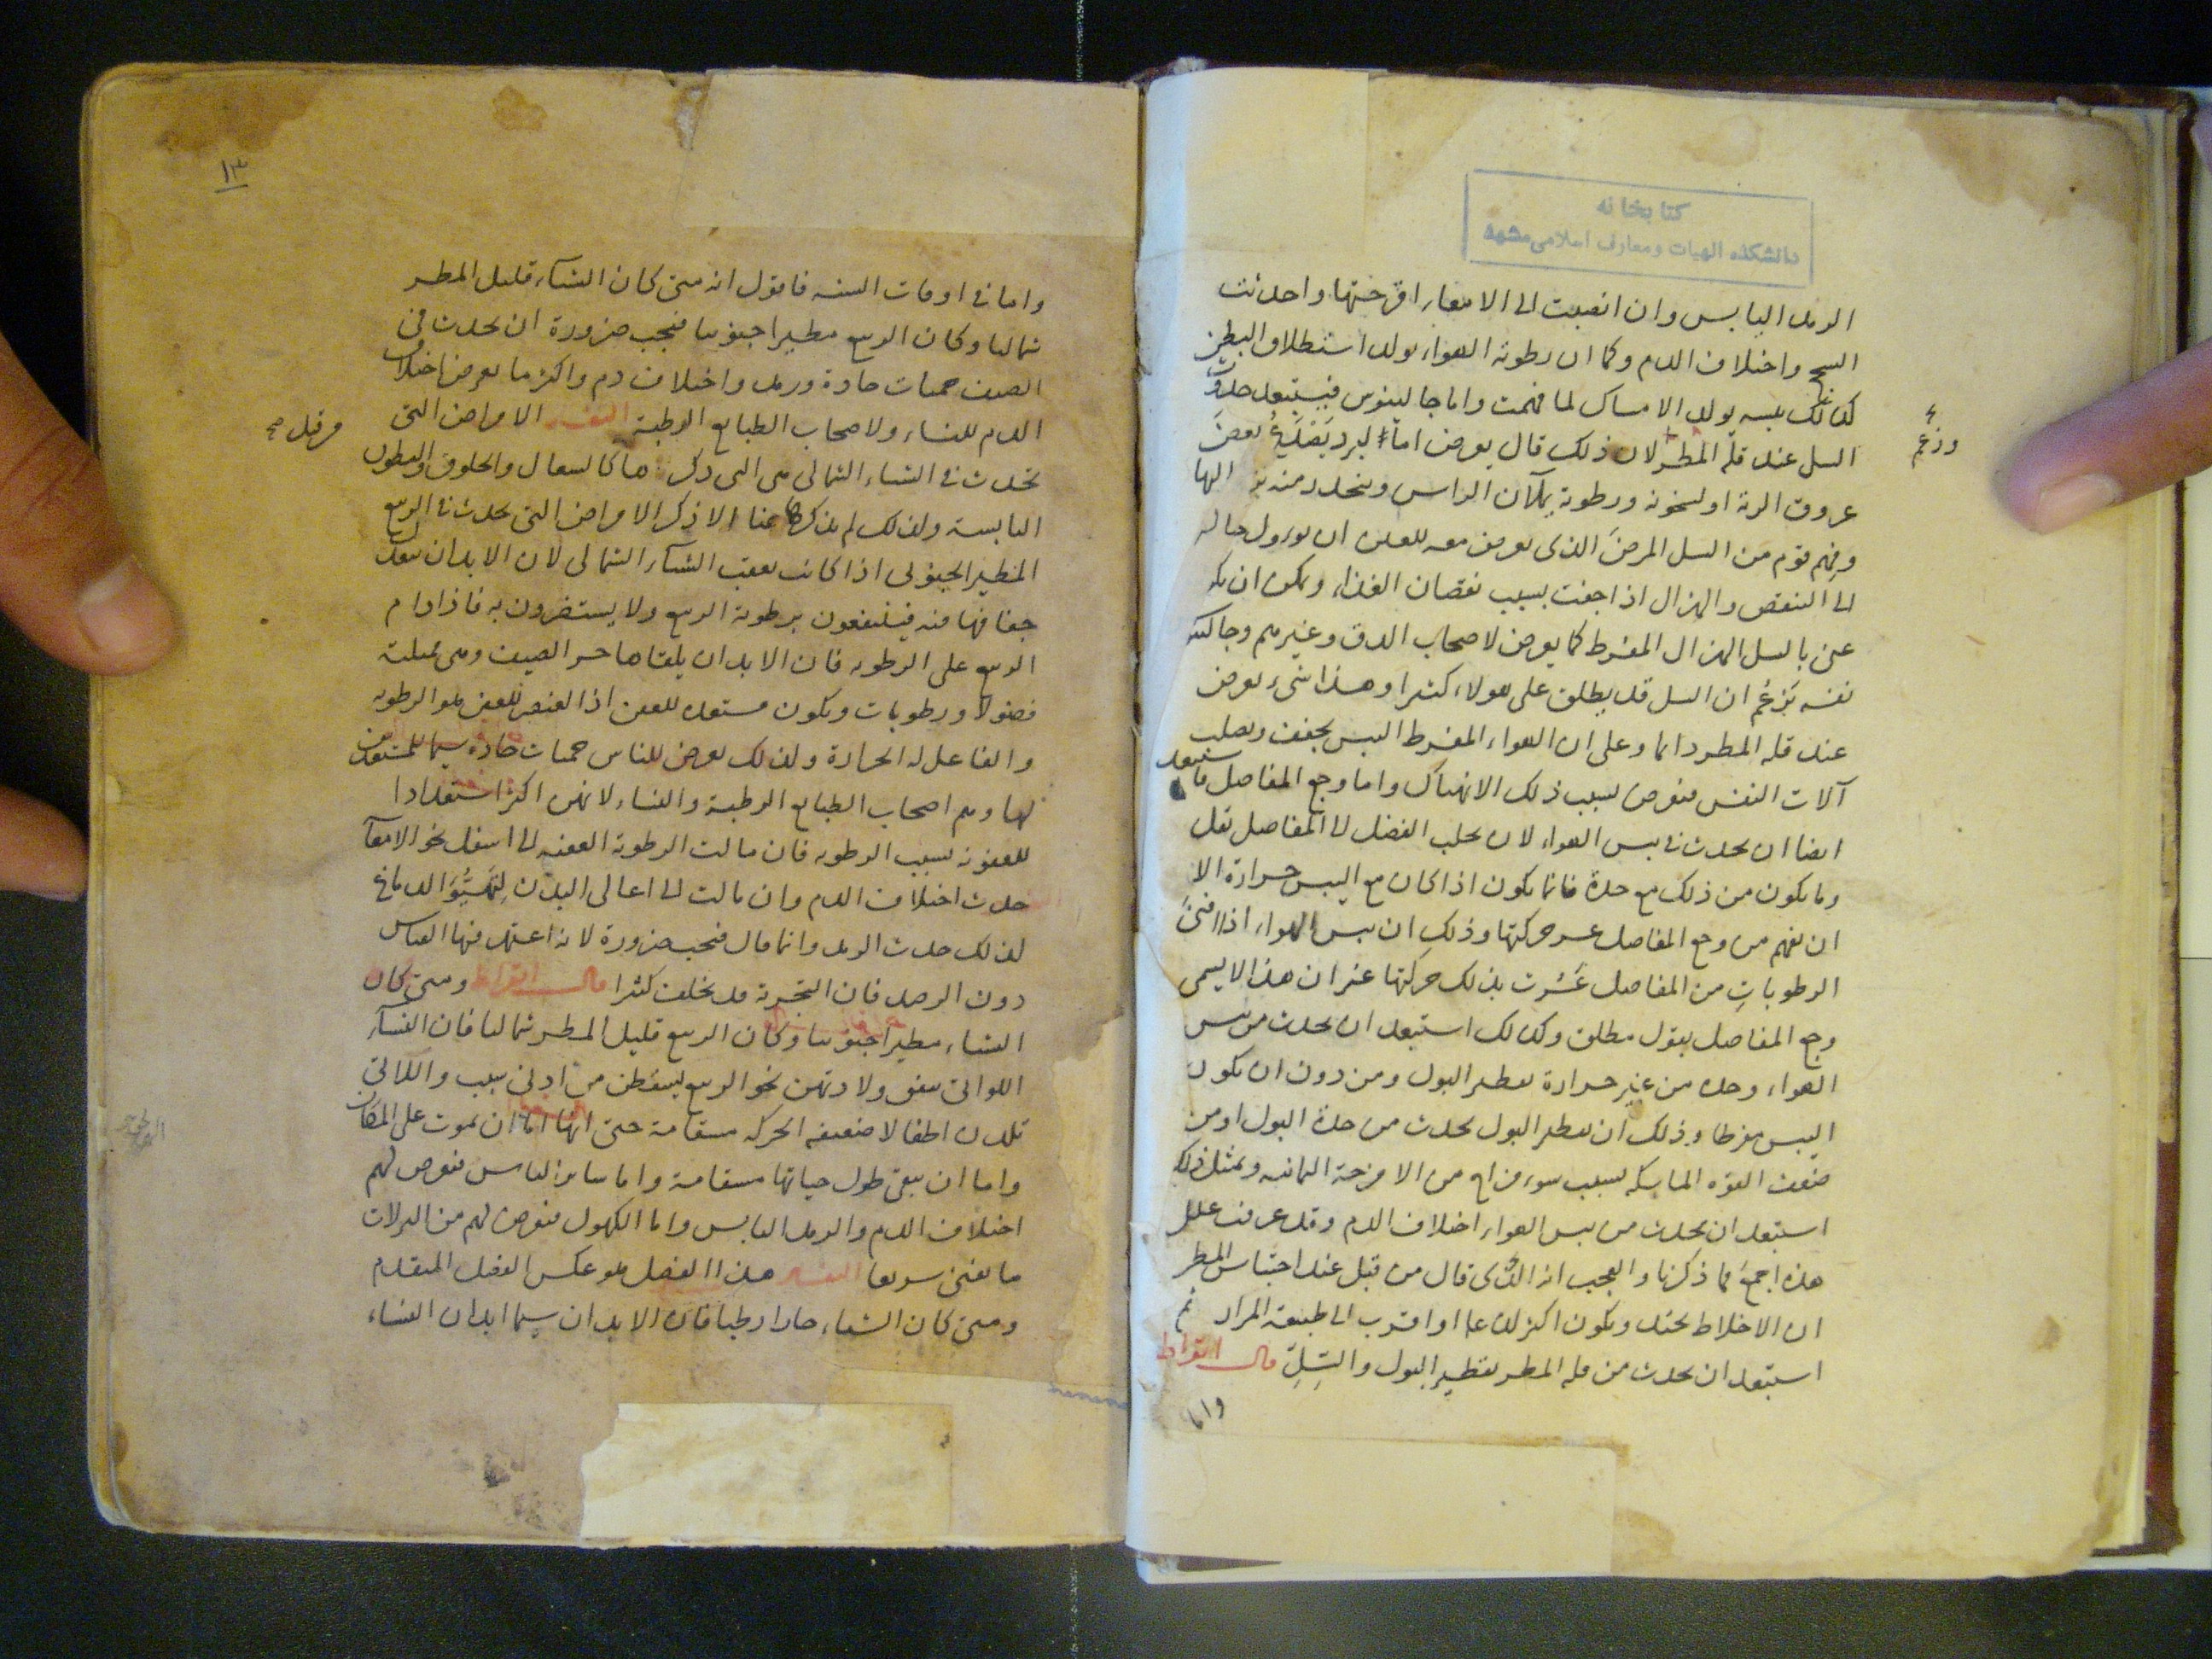 كتابخانه
دانشكده الهيات ومعارف اسلامى مشهد
الرمد اليابس وان انصبت الى الامعاء اقرحتها واحدثت
السحج واختلاف الدم وكما ان رطوبة الهواء تولد استطلاق البطن
كذلك يبسه يولد الامساك لما فهمت واما جالينوس فيستبعد حدوث
السل عند قلة المطر لان ذلك قال يعرض اما لبرد يعرض
وزعم
عروق الرئة او لسخونة ورطوبة يملآن الراس وينحدر منه اليها
وفهم قوم من السل المرض الذى يعرض معه للعين ان يؤول حالها
الى النقص والهزال اذا جفت بسبب نقصان الغذاء ويمكن ان يكون
عنى بالسل الهزال المفرط كما يعرض لاصحاب الدق وغيرهم وجالينوس
نفسه يزعم ان السل قد يطلق على هولاء كثيرا وهذا شىء يعرض
عند قلة المطر دائما وعلى ان الهواء المفرط اليبس يجفف ويصلب
آلات النفس فيعرض بسبب ذلك الانهتاك واما وجع المفاصل فاستبعد
ايضا ان يحدث فى يبس الهواء لان تحلب الفضل الى المفاصل يقل
وما يكون من ذلك مع حدة فانما يكون اذا كان مع اليبس حرارة الا
ان تفهم من وجع المفاصل عسر حركتها وذلك ان يبس الهواء اذا افنى
الرطوبات من المفاصل عسرت بذلك حركتها غير ان هذا لا يسمى
وجع المفاصل بقول مطلق وكذلك استبعد ان يحدث من يبس
الهواء وحده من غير حرارة تقطير البول ومن دون ان يكون
اليبس مفرطا وذلك ان تقطير البول يحدث من حدة البول او من
ضعف القوة الماسكة بسبب سوء مزاج من الامزجة الثمانية وبمثل ذلك
استبعد ان يحدث من يبس الهواء اختلاف الدم وقد عرفت علل
هذه اجمع مما ذكرنا والعجب انه الذى قال من قبل عند احتباس المطر
ان الاخلاط تحتد ويكون اكثر لذعا او اقرب الى طبيعة المرار ثم
استبعد ان يحدث من قلة المطر تقطير البول والسل قال ابقراط
واما
١٣
واما فى اوقات السنة فاقول انه متى كان الشتاء قليل المطر
شماليا وكان الربيع مطيرا جنوبيا فيجب ضرورة ان يحدث فى
الصيف حميات حادة ورمد واختلاف دم واكثر ما يعرض اختلاف
الدم للنساء ولاصحاب الطبايع الرطبة التفسير الامراض التى
تحدث فى الشتاء الشمالى هى التى ذكرها كالسعال والحلوق والبطون
من قبل صح
اليابسة ولذلك لم يذكرها هنا الا ذكر الامراض التى تحدث فى الربيع
المطير الجنوبى اذا كانت تعقب الشتاء الشمالى لان الابدان تبعد
جفافها منه فينتفعون برطوبة الربيع ولا يستضرون به فاذا دام
الربيع على الرطوبة فان الابدان يلقاها حر الصيف وهى ممتلئة
فضولا ورطوبات وتكون مستعدة للعفن اذ العنصر للعفن هو الرطوبة
والفاعل له الحرارة ولذلك يعرض للناس حميات حادة سيما للمستعدين
لها وهم اصحاب الطبايع الرطبة والنساء لانهن اكثر استعدادا
للعفونة بسبب الرطوبة فان مالت الرطوبة العفنة الى اسفل نحو الامعآ
حدث اختلاف الدم وان مالت الى اعالى البدن لتهيؤ الدماغ
لذلك حدث الرمد وانما قال فيجب ضرورة لانه اعتمد فيها القياس
دون الرصد فان التجربة قد تخلف كثيرا قال ابقراط ومتى كان
الشتاء مطيرا جنوبيا وكان الربيع قليل المطر شماليا فان النسآء
اللواتى يتفق ولادتهن نحو الربيع يسقطن من ادنى سبب واللاتى
تلدن اطفالا ضعيفة الحركة مسقامة حتى انها اما ان تموت على المكان
واما ان تبقى طول حياتها مسقامة واما ساير الناس فيعرض لهم
اختلاف الدم والرمد اليابس واما الكهول فيعرض لهم من النزلات
ما يفنى سريعا التفسير هذا الفصل هو عكس الفصل المتقدم
ومتى كان الشتاء حارا رطبا فان الابدان سيما ابدان النساء